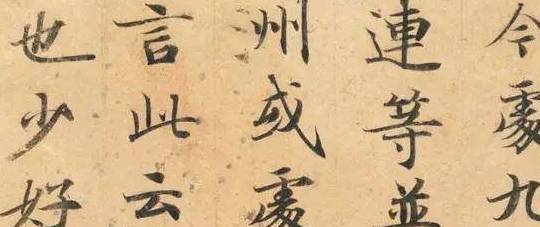 今處九
連等並
州或處
言此云
也少好